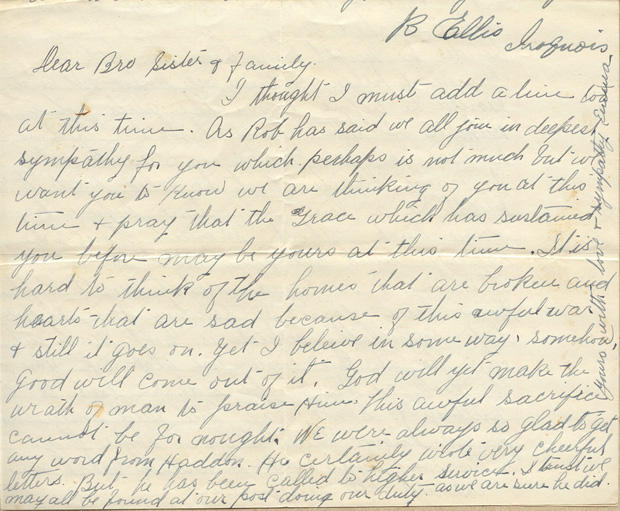 R Ellis
Iroquois
Dear Bro Sister & Family.
I thought I must add a line
at this time. As Rob has said we all join in deepest
sympathy for you which perhaps is not much but we
want you to know we are thinking of you at this
time & pray that the Grace which has sustained
you before may be yours at this time. It is
hard to think of the homes that are broken and
hearts that are sad because of this awful war
& still it goes on. Yet I believe in some way, somehow,
good will come out of it. God will yet make the
wrath of man to praise Him. This awful sacrifice
cannot be for nought. We were always so glad to get
any word from Haddon. He certainly wrote very cheerful
letters. But he has been called to higher service. I trust we
may all be found at our post doing our duty as we are sure he did.
Yours with love & sympathy